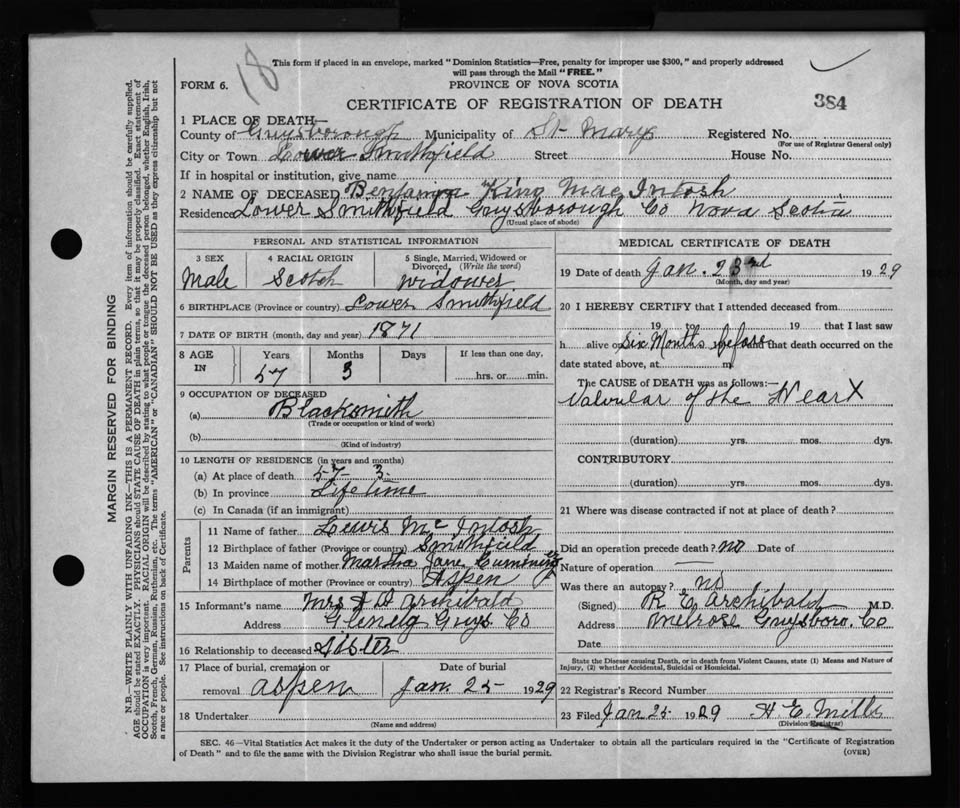 18
This form if placed in an envelope, marked "Dominion Statistics—Free, penalty for improper use $300," and properly addressed
will pass through the Mail "FREE."
FORM 6.
PROVINCE OF NOVA SCOTIA
CERTIFICATE OF REGISTRATION OF DEATH
384
1 PLACE OF DEATH—
County of Guysborough Municipality of St Marys Registered No.
(For use of Registrar General only)
City or Town Lower Smithfield Street House No.
If in hospital or institution, give name
2 NAME OF DECEASED Benjamin King MacIntosh
Residence Lower Smithfield Guysborough Co Nova Scotia
(Usual place of abode)
PERSONAL AND STATISTICAL INFORMATION
3 SEX 4 RACIAL ORIGIN 5 Single, Married, Widowed or Divorced, (Write the word)
Male Scotch Widower
6 BIRTHPLACE (Province or country) Lower Smithfield
7 DATE OF BIRTH (month, day and year) 1871
8 AGE IN Years Months Days If less than one day,
57 3 hrs. or min.
9 OCCUPATION OF DECEASED
(a) Blacksmith
(Trade or occupation or kind of work)
(b)
(Kind of industry)
10 LENGTH OF RESIDENCE (in years and months)
(a) At place of death 57 - 3
(b) In province Lifetime
(c) In Canada (if an immigrant)
Parents
11 Name of father Lewis McIntosh
12 Birthplace of father (Province or country) Smithfield
13 Maiden name of mother Martha Jane Cumming
14 Birthplace of mother (Province or country) Aspen
15 Informant's name Mrs A D Archibald
Address Glenelg Guys Co
16 Relationship to deceased Sister
17 Place of burial, cremation or removal Aspen Date of burial Jan. 25 - 1929
18 Undertaker
(Name and address)
MEDICAL CERTIFICATE OF DEATH
19 Date of death Jan. 23rd 1929
(Month, day and year)
20 I HEREBY CERTIFY that I attended deceased from
19 to 19 that I last saw
h alive on Six Months before and that death occurred on the
date stated above, at m.
The CAUSE of DEATH was as follows:—
Valvular of the Heart
(duration) yrs. mos. dys.
CONTRIBUTORY
(duration) yrs. mos. dys.
21 Where was disease contracted if not at place of death?
Did an operation precede death? no Date of
Nature of operation —
Was there an autopsy? no
(Signed) R E Archibald M.D.
Address Melrose Guysboro. Co
Date
State the Disease causing Death, or in death from Violent Causes, state (1) Means and Nature of
Injury, (2) whether Accidental, Suicidal or Homicidal.
22 Registrar's Record Number
23 Filed Jan 25 1929 H. E. Mills
(Division Registrar)
SEC. 46—Vital Statistics Act makes it the duty of the Undertaker or person acting as Undertaker to obtain all the particulars required in the "Certificate of Registration
of Death" and to file the same with the Division Registrar who shall issue the burial permit. (OVER)
MARGIN RESERVED FOR BINDING
N.B.—WRITE PLAINLY WITH UNFADING INK—THIS IS A PERMANENT RECORD. Every item of information should be carefully supplied.
AGE should be stated EXACTLY. PHYSICIANS should STATE CAUSE OF DEATH in plain terms, so that it may be properly classified. Exact statement of
OCCUPATION is very important. RACIAL ORIGIN will be described by stating to what people or tongue the deceased person belonged, whether English, Irish,
Scotch, French, German, Russian, Ruthenian, etc. The terms "AMERICAN" or "CANADIAN" SHOULD NOT BE USED as they express citizenship but not
a race or people. See instructions on back of Certificate.